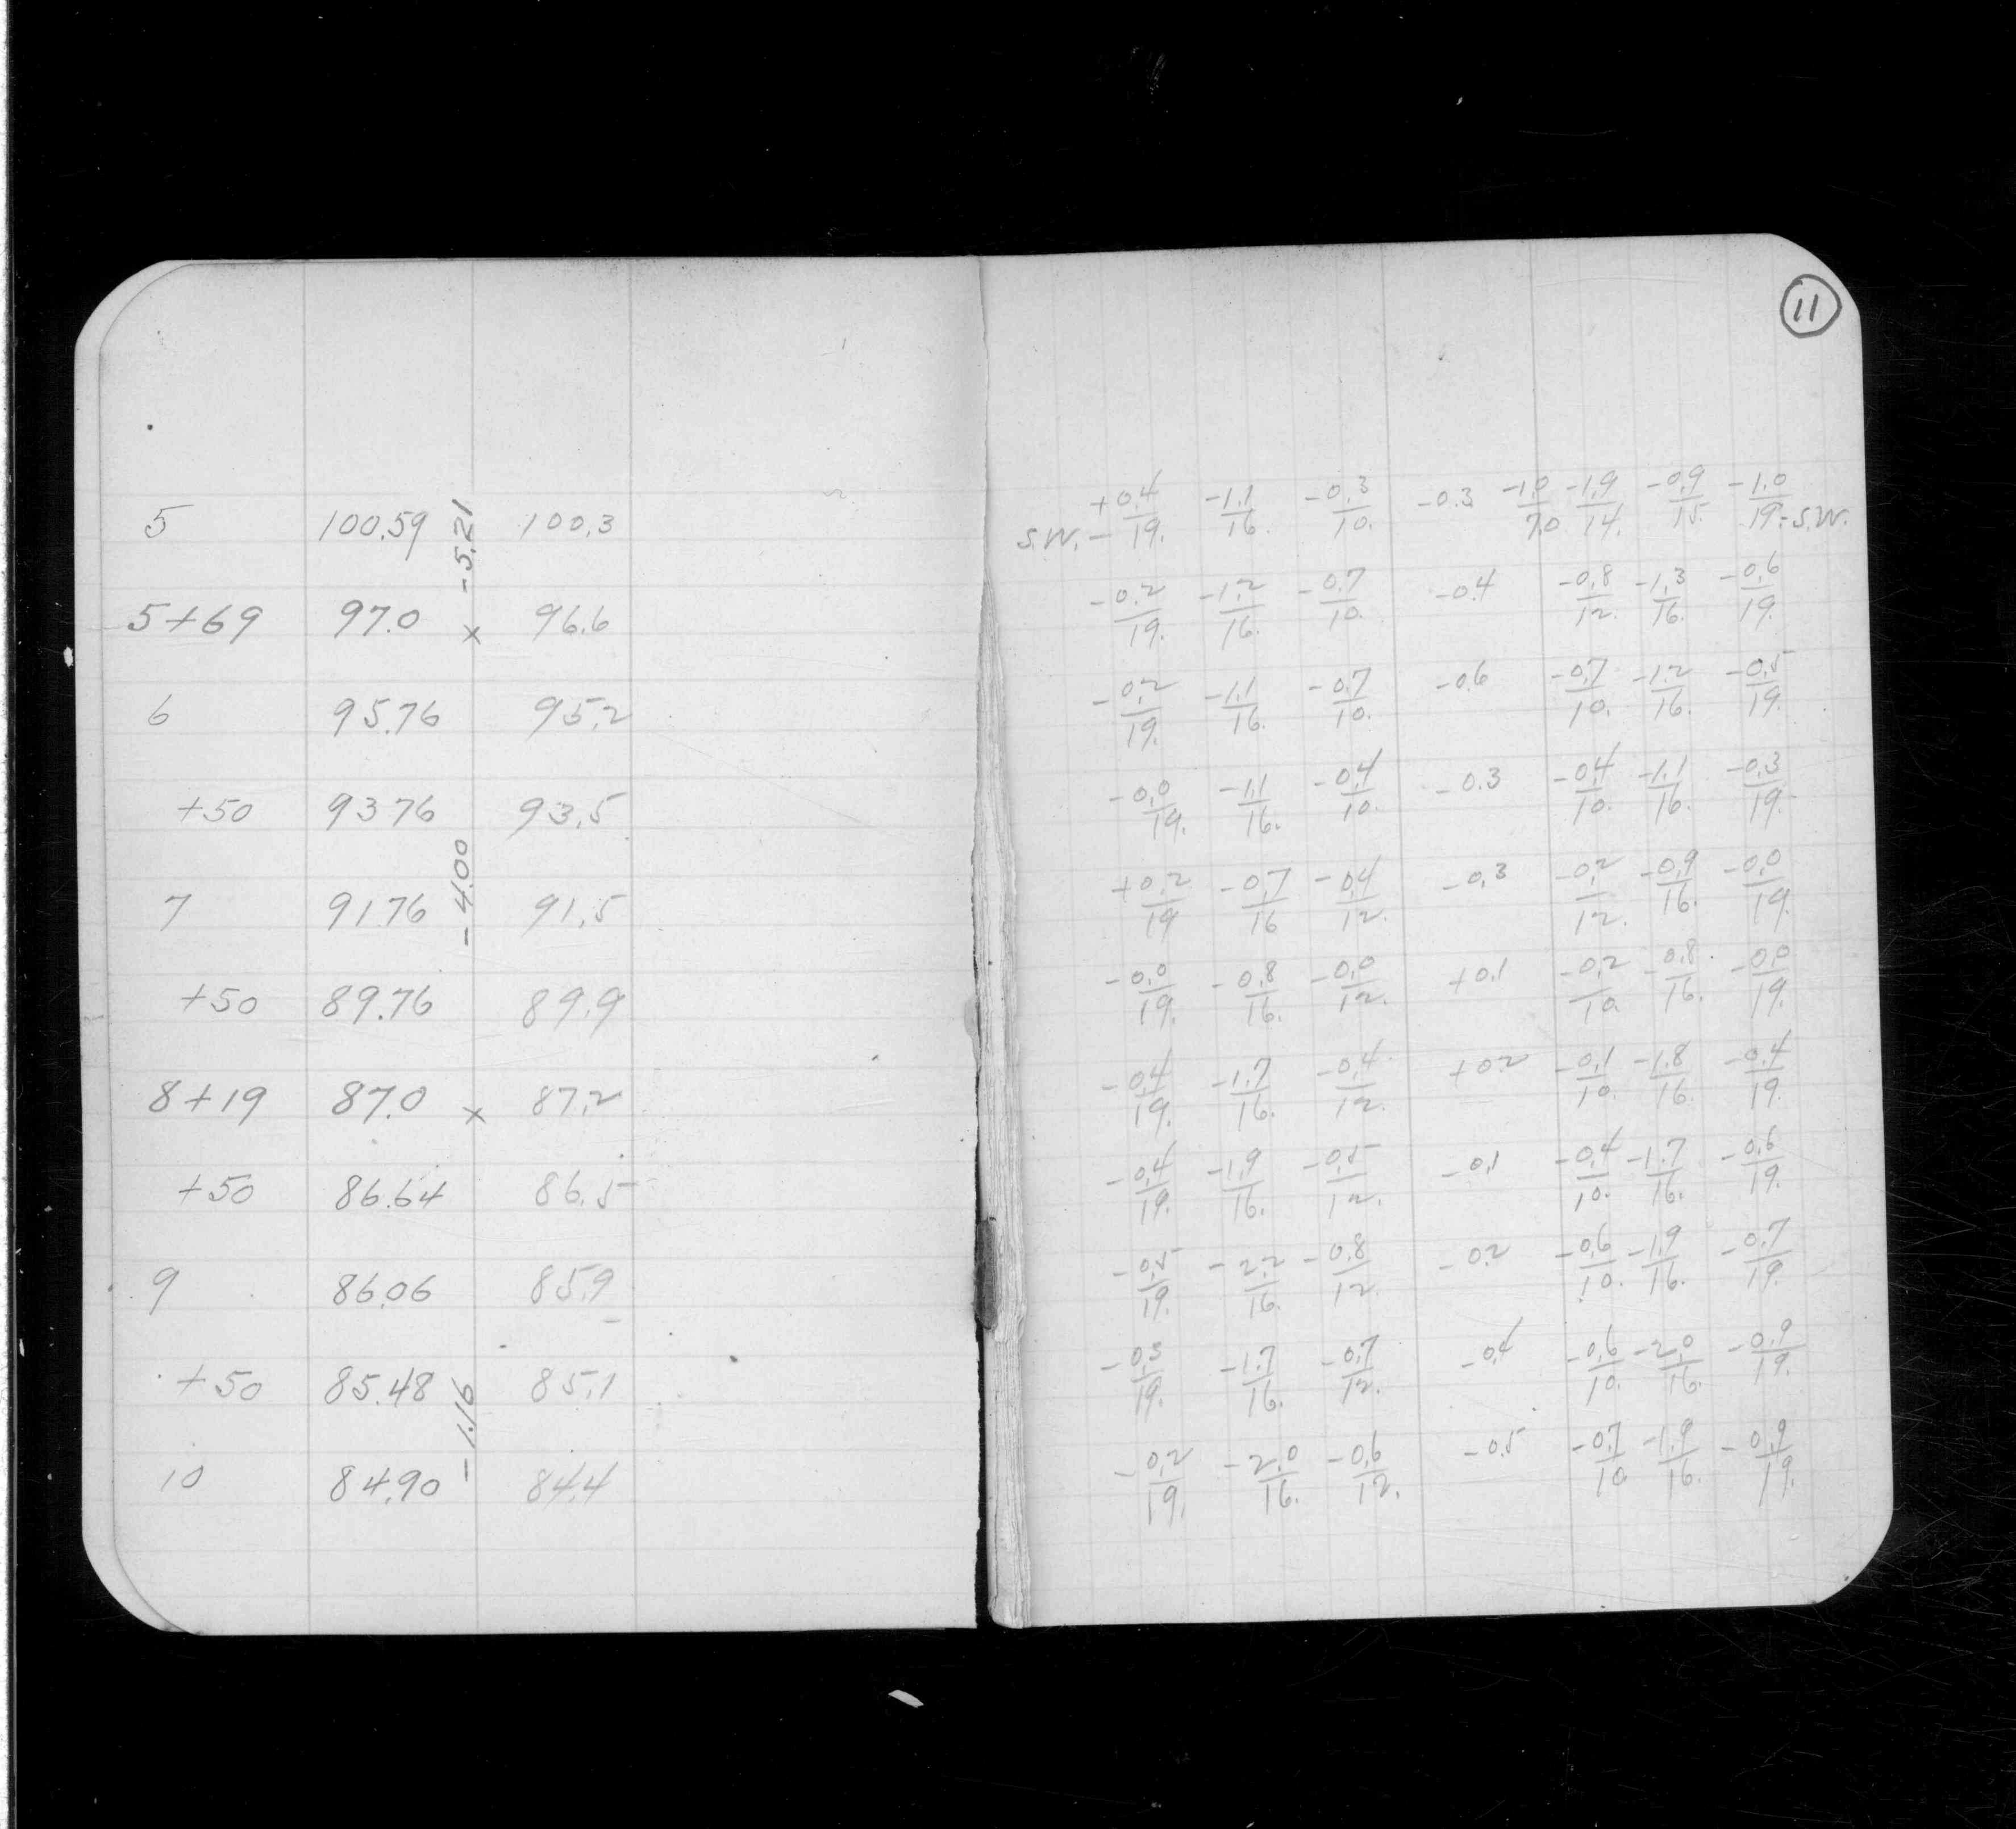 11
5 100.59 -5.21 100.3
5+69 97.0 x 96.6
6 95.76 95.2
+50 93 76 93.5
7 91.76 -4.00 91.5
+50 89.76 89.9
8+19 87.0 x 87.2
+50 86.64 86.5
9 86.06 85.9
+50 85.48 -1.16 85.1
10 84.90 84.4
S.W. - +0.4/19. -1.1/16. -0.3/10. -0.3 -1.0/7.0 -1.9/14. -0.9/15. -1.0/19. - S.W.
-0.2/19. -1.2/16. -0.7/10. -0.4 -0.8/12. -1.3/16. -0.6/19.
-0.2/19. -1.1/16. -0.7/10. -0.6 -0.7/10. -1.2/16. -0.5/19.
-0.0/19. -1.1/16. -0.4/10. -0.3 -0.4/10. -1.1/16. -0.3/19.
+0.2/19 -0.7/16 -0.4/12. -0.3 -0.2/12. -0.9/16. -0.0/19.
-0.0/19. -0.8/16. -0.0/12. +0.1 -0.2/10. -0.8/16. -0.0/19.
-0.4/19. -1.7/16. -0.4/12. +0.2 -0.1/10. -1.8/16. -0.4/19.
-0.4/19. -1.9/16. -0.5/12. -0.1 -0.4/10. -1.7/16. -0.6/19.
-0.5/19. -2.2/16. -0.8/12. -0.2 -0.6/10. -1.9/16. -0.7/19.
-0.3/19. -1.7/16. -0.7/12. -0.4 -0.6/10. -2.0/16. -0.9/19.
-0.2/19. -2.0/16. -0.6/12. -0.5 -0.7/10 -1.9/16. -0.9/19.